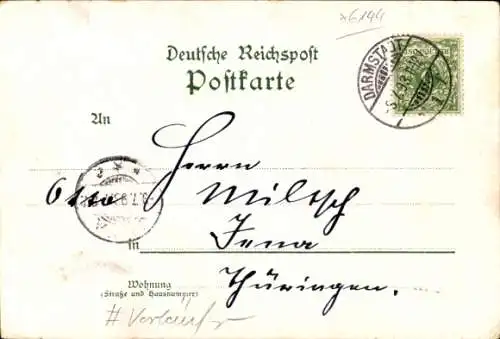 x6144
Deutsche Reichspost
Postkarte
DARMSTADT
1
An
Herrn
Otto Miltsch
in Jena
Thüringen.
Wohnung
(Straße und Hausnummer)